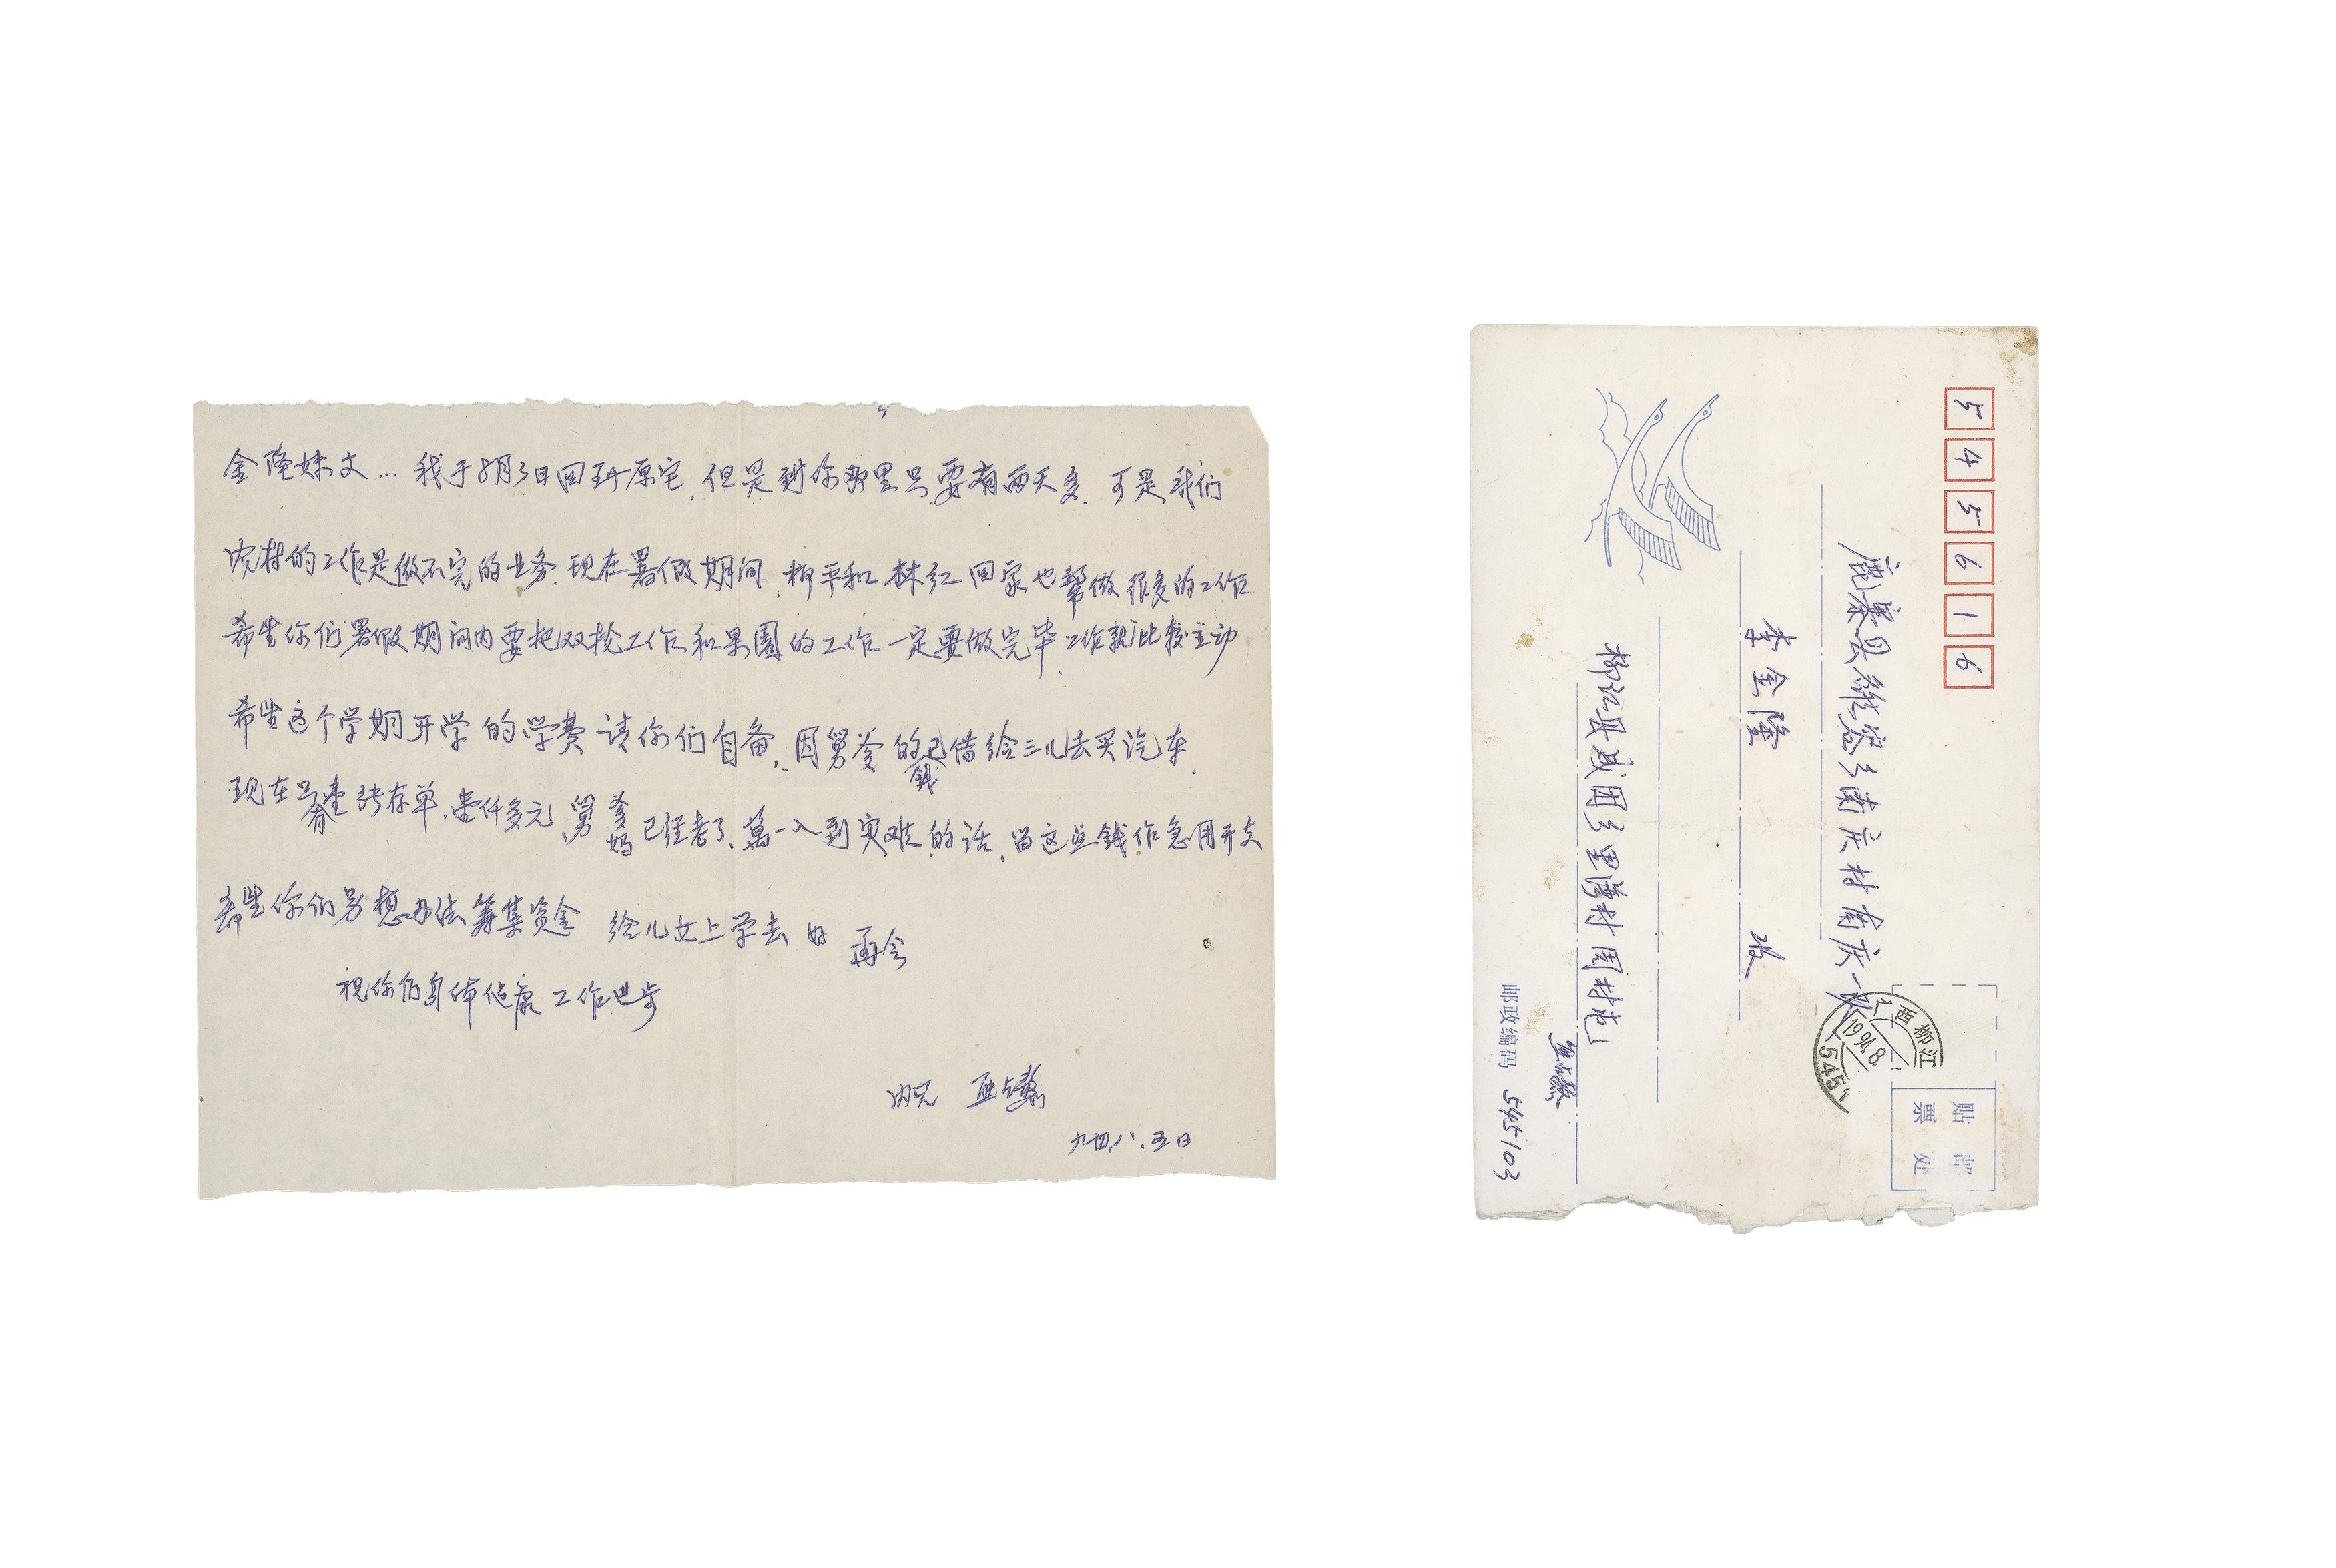 金隆妹丈… 我于8月3日回到原宅,但是到你那里只要有两天多.可是我们
农村的工作是做不完的业务.现在署假期间,柳平和林红回家也帮做很多的工作
希生你们署假期间内要把双抢工作和果園的工作一定要做完毕.工作就比较主动
希生这个学期开学的学费请你们自备,因舅爹的钱已借给三儿去买汽车.
现在只有壹张存单,壹仟多元,舅爹妈已经老了,萬一入到灾难的话,留这些钱作急用开支
希生你们另想办法筹集资金 给儿女上学去 好 再会
祝你们身体健康 工作进步
内兄
九四.八.五日
545616
鹿寨县雒容乡南庆村南庆一队
李金隆 收
柳江县成团乡里湾村围村屯
邮政编码 545103
广西柳江
1994.8
545
贴邮
票处